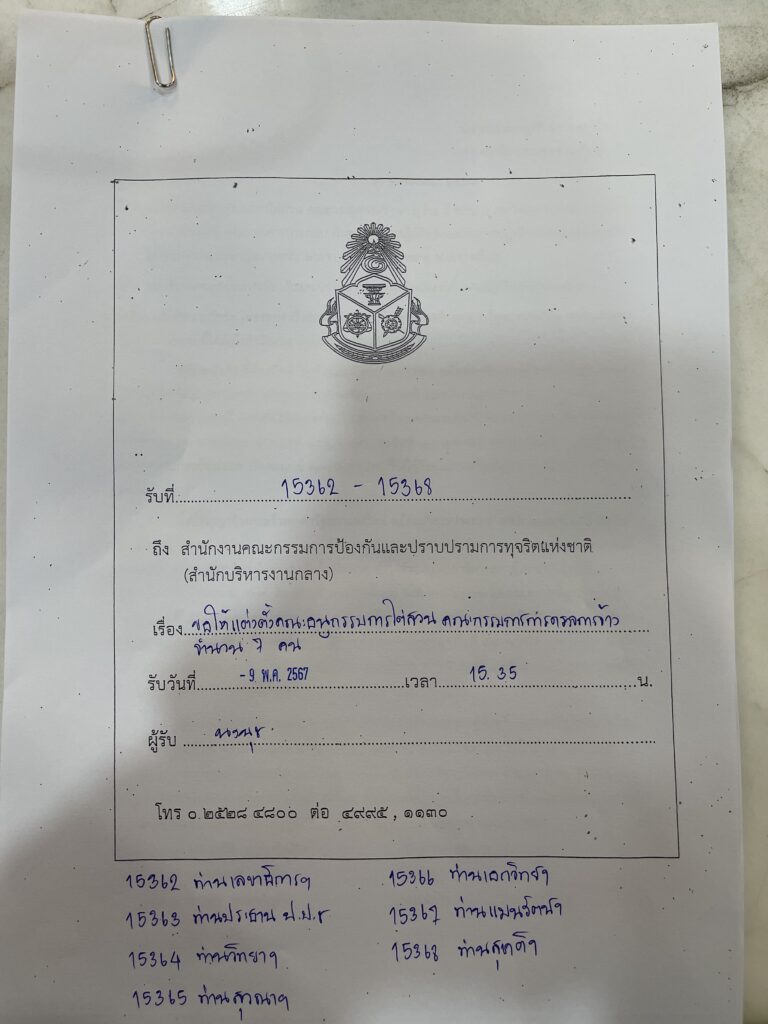 รับที่ 15362 - 15368
ถึง สำนักงานคณะกรรมการป้องกันและปราบปรามการทุจริตแห่งชาติ
(สำนักบริหารงานกลาง)
เรื่อง ขอให้แต่งตั้งคณะอนุกรรมการไต่สวน คณะกรรมการการ
จำนวน 7 คน
รับวันที่ - 9 พ.ค. 2567 เวลา 15.35 น.
ผู้รับ
โทร ๐ ๒๕๒๘ ๔๘๐๐ ต่อ ๔๙๙๕ , ๑๑๓๐
15362 ท่านเลขาธิการฯ
15363 ท่านประธาน ป.ป.ช
15364 ท่านวิทยาฯ
15365 ท่านสุวณาฯ
15366 ท่านเอกวิทย์ฯ
15367 ท่านแมนรัตน์ฯ
15368 ท่าน